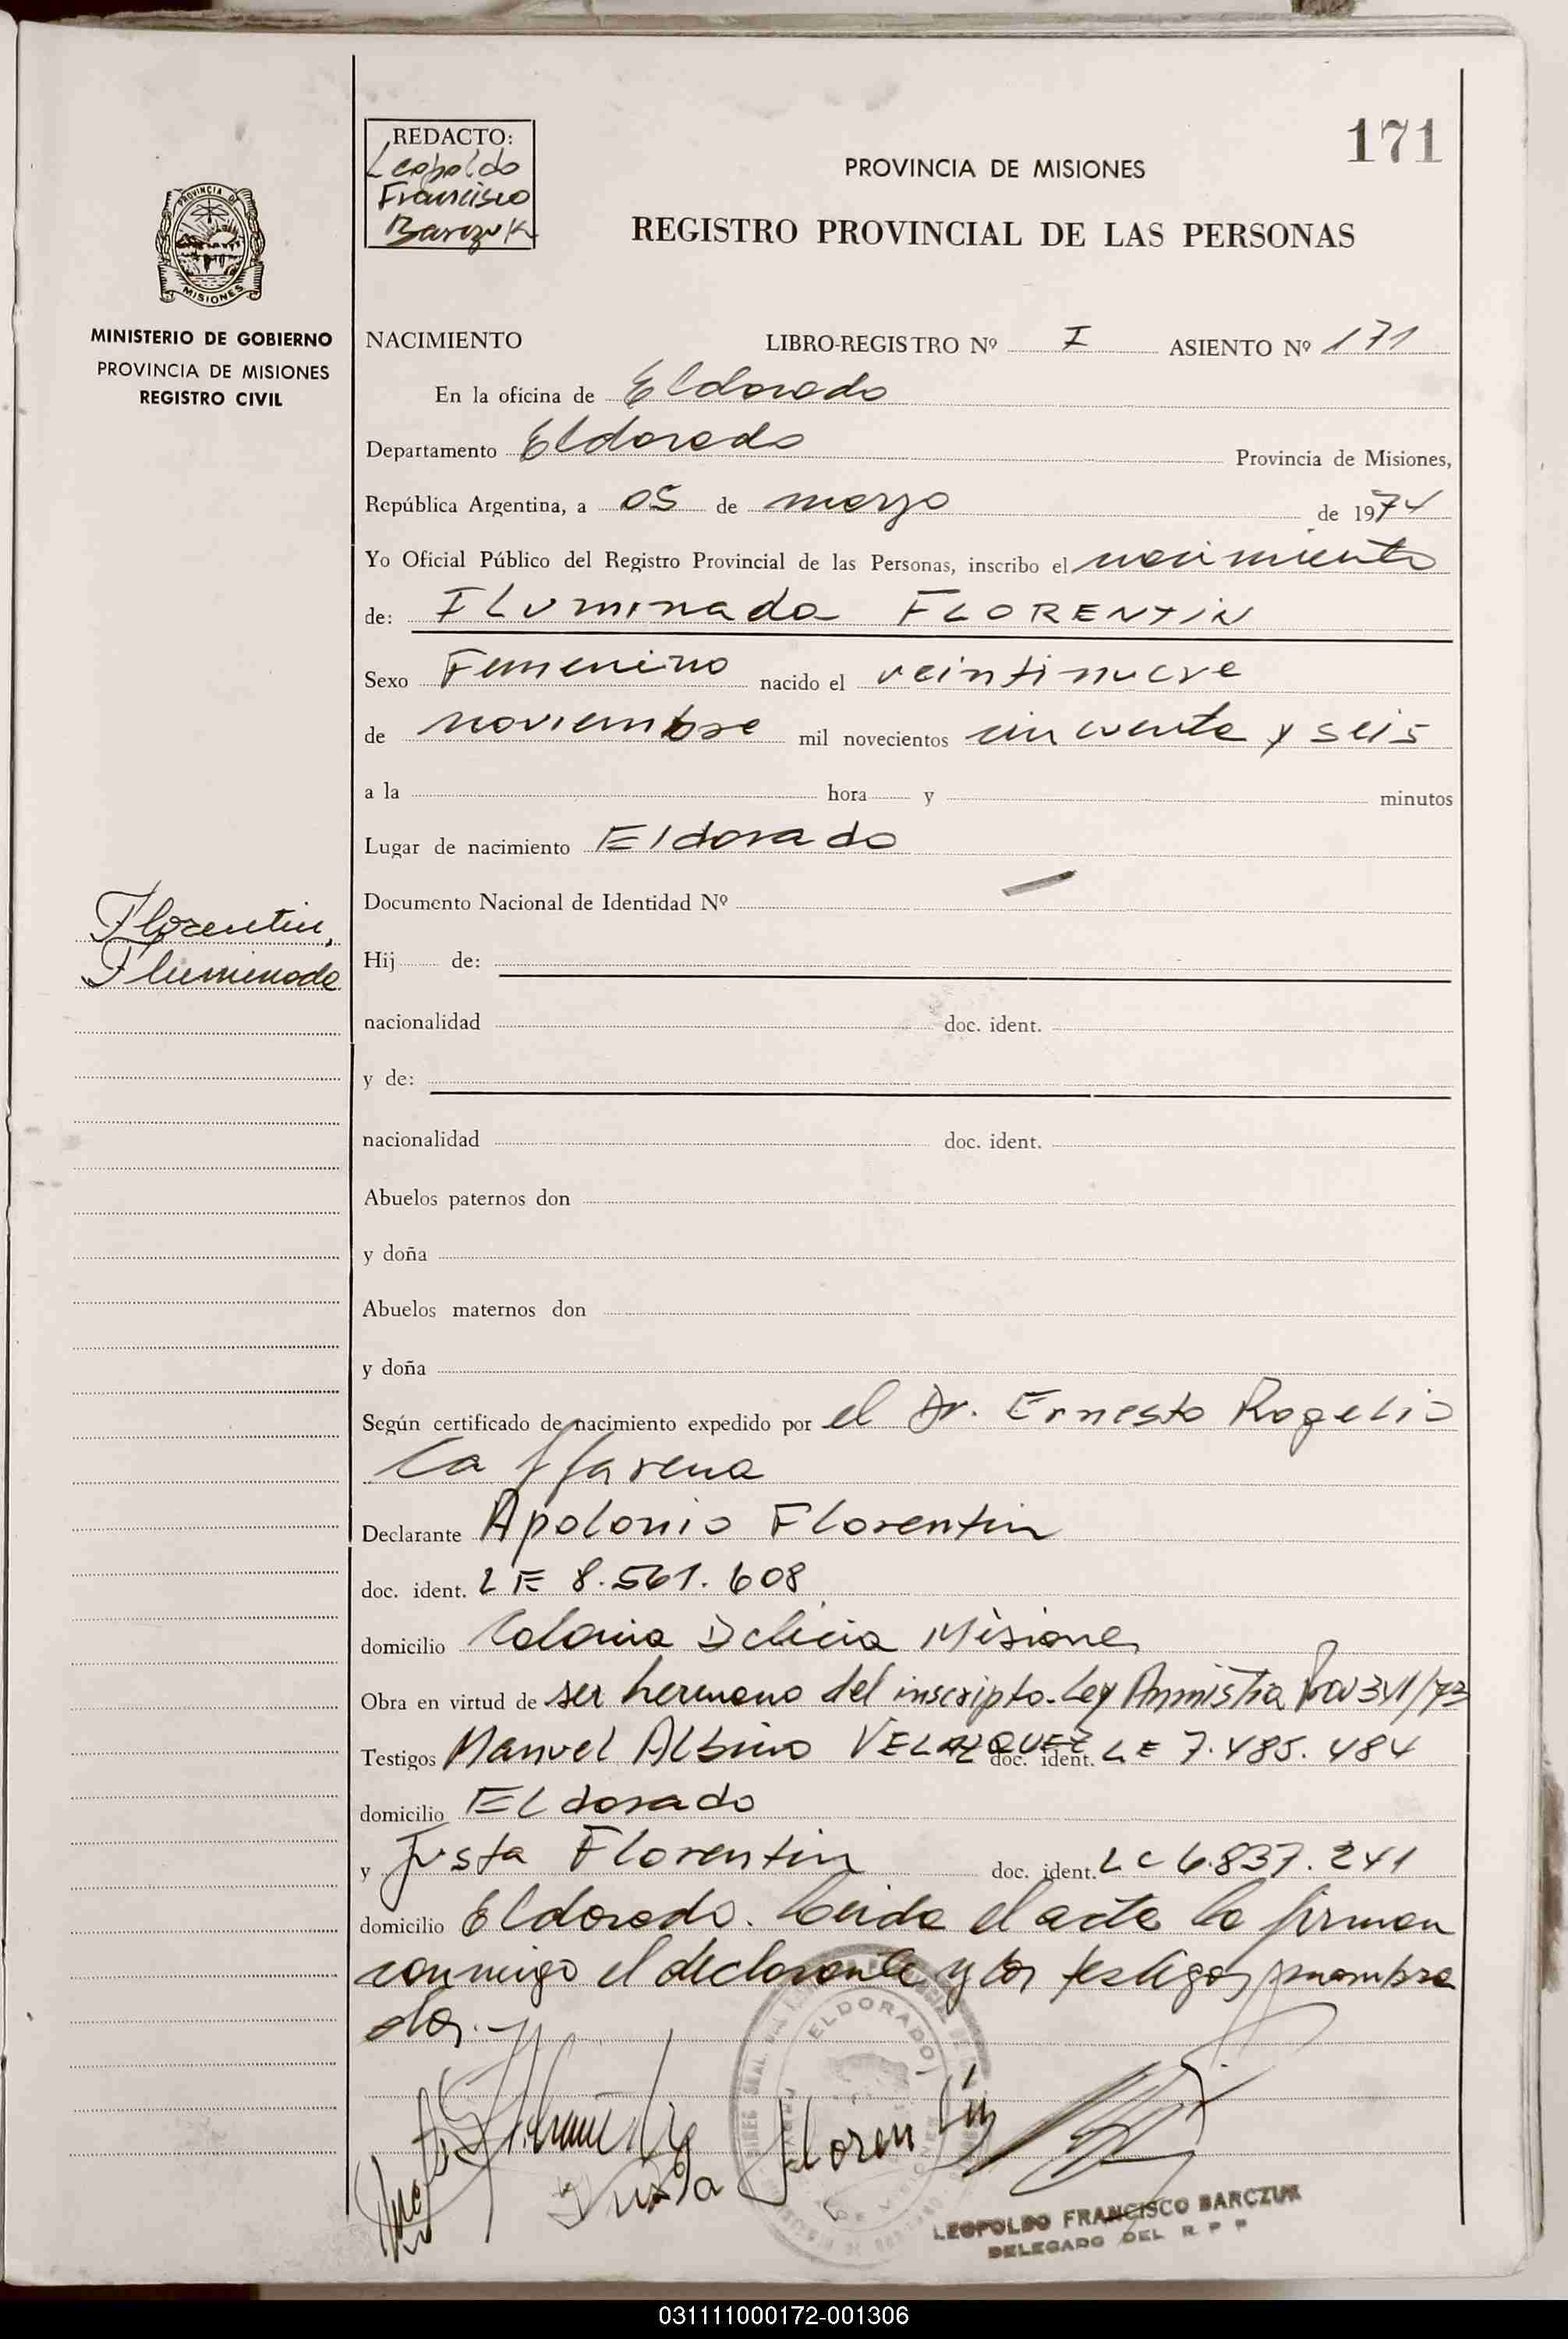 171
REDACTO:
Leopoldo
Francisco
Barczuk
PROVINCIA DE MISIONES
REGISTRO PROVINCIAL DE LAS PERSONAS
PROVINCIA D
MISIONES
MINISTERIO DE GOBIERNO
PROVINCIA DE MISIONES
REGISTRO CIVIL
NACIMIENTO LIBRO-REGISTRO Nº I ASIENTO Nº 171
En la oficina de Eldorado
Departamento Eldorado Provincia de Misiones,
República Argentina, a 05 de marzo de 1974
Yo Oficial Público del Registro Provincial de las Personas, inscribo el nacimiento
de: Iluminada FLORENTIN
Sexo Femenino nacido el veintinueve
de noviembre mil novecientos cincuenta y seis
a la hora y minutos
Lugar de nacimiento Eldorado
Documento Nacional de Identidad Nº
Florentin,
Iluminada
Hij de:
nacionalidad doc. ident.
y de:
nacionalidad doc. ident.
Abuelos paternos don
y doña
Abuelos maternos don
y doña
Según certificado de nacimiento expedido por el Dr. Ernesto Rogelio
La
Declarante Apolonio Florentin
doc. ident. LE 8.561.608
domicilio Colonia Delicia Misiones
Obra en virtud de ser hermano del inscripto. Ley Amnistia
Testigos Manuel Albino VELAZQUEZ doc. ident. LE 7.485.484
domicilio Eldorado
y Justa Florentin doc. ident. LC 6.837.241
domicilio Eldorado. Leida el acta la firman
conmigo el declarante y los testigos nombra
dos.-
ELDORADO
Justa Florentin
LEOPOLDO FRANCISCO BARCZUK
DELEGADO DEL R P P
031111000172-001306